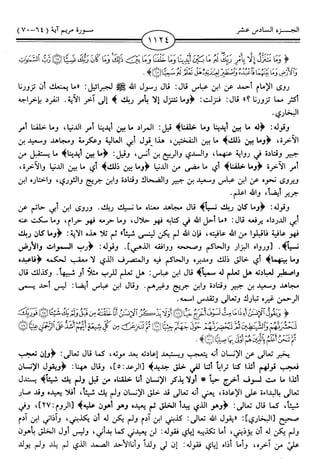 الجـــزء السادس عشر
١١٢٤
سـورة مريم آية (٦٤-٧٠)
﴿ وَمَا نَتَنَزَّلُ إِلَّا بِأَمْرِ رَبِّكَ لَهُ مَا بَيْنَ أَيْدِينَا وَمَا خَلْفَنَا وَمَا بَيْنَ ذَلِكَ وَمَا كَانَ رَبُّكَ نَسِيًّا ۝ رَّبُّ السَّمَاوَاتِ
وَالْأَرْضِ وَمَا بَيْنَهُمَا فَاعْبُدْهُ وَاصْطَبِرْ لِعِبَادَتِهِ هَلْ تَعْلَمُ لَهُ سَمِيًّا ۝ ﴾.
روى الإمام أحمد عن ابن عباس قال: قال رسول الله ﷺ لجبرائيل: «ما يمنعك أن تزورنا
أكثر مما تزورنا ؟» قال: فنزلت: ﴿وما نتنزل إلا بأمر ربك ﴾ إلى آخر الآية. انفرد بإخراجه
البخاري.
وقوله: ﴿له ما بين أيدينا وما خلفنا﴾ قيل: المراد ما بين أيدينا أمر الدنيا، وما خلفنا أمر
الآخرة، ﴿وما بين ذلك﴾ ما بين النفختين، هذا قول أبي العالية وعكرمة ومجاهد وسعيد بن
جبير وقتادة في رواية عنهما، والسدي والربيع بن أنس، وقيل: ﴿ما بين أيدينا﴾ ما يستقبل من
أمر الآخرة ﴿وما خلفنا﴾ أي ما مضى من الدنيا ﴿وما بين ذلك﴾ أي ما بين الدنيا والآخرة،
ويروى نحوه عن ابن عباس وسعيد بن جبير والضحاك وقتادة وابن جريج والثوري، واختاره ابن
جرير أيضاً، والله اعلم.
وقوله: ﴿وما كان ربك نسياً﴾ قال مجاهد معناه ما نسيك ربك. وروى ابن أبي حاتم عن
أبي الدرداء يرفعه قال: «ما أحل الله في كتابه فهو حلال، وما حرمه فهو حرام، وما سكت عنه
فهو عافية فاقبلوا من الله عافيته، فإن الله لم يكن لينسى شيئاً» ثم تلا هذه الاية: ﴿وما كان ربك
نسياً﴾. [ورواه البزار والحاكم وصححه ووافقه الذهبي]. وقوله: ﴿رب السموات والأرض
وما بينهما﴾ أي خالق ذلك ومدبره والحاكم فيه والمتصرف الذي لا معقب لحكمه ﴿فاعبده
واصطبر لعبادته هل تعلم له سمياً﴾ قال ابن عباس: هل تعلم للرب مثلاً أو شبيهاً. وكذلك قال
مجاهد وسعيد بن جبير وقتادة وابن جريج وغيرهم. وقال ابن عباس أيضا: ليس أحد يسمى
الرحمن غيره تبارك وتعالى وتقدس اسمه.
﴿ وَيَقُولُ الْإِنسَانُ أَئِذَا مَا مِتُّ لَسَوْفَ أُخْرَجُ حَيًّا ۝ أَوَلَا يَذْكُرُ الْإِنسَانُ أَنَّا خَلَقْنَاهُ مِن قَبْلُ وَلَمْ يَكُ شَيْئًا ۝
فَوَرَبِّكَ لَنَحْشُرَنَّهُمْ وَالشَّيَاطِينَ ثُمَّ لَنُحْضِرَنَّهُمْ حَوْلَ جَهَنَّمَ جِثِيًّا ۝ ثُمَّ لَنَنزِعَنَّ مِن كُلِّ شِيعَةٍ أَيُّهُمْ أَشَدُّ عَلَى الرَّحْمَنِ عِتِيًّا ۝
ثُمَّ لَنَحْنُ أَعْلَمُ بِالَّذِينَ هُمْ أَوْلَى بِهَا صِلِيًّا ۝ ﴾.
يخبر تعالى عن الإنسان أنه يتعجب ويستبعد إعادته بعد موته، كما قال تعالى: ﴿وإن تعجب
فعجب قولهم أئذا كنا تراباً أئنا لفي خلق جديد﴾ [الرعد:٥]، وقال ههنا: ﴿ويقول الإنسان
أئذا ما مت لسوف أخرج حياً * أولا يذكر الإنسان أنا خلقناه من قبل ولم يك شيئاً﴾ يستدل
تعالى بالبداءة على الإعادة، يعني أنه تعالى قد خلق الإنسان ولم يك شيئاً، أفلا يعيده وقد صار
شيئاً، كما قال تعالى: ﴿وهو الذي يبدأ الخلق ثم يعيده وهو أهون عليه﴾ [الروم:٢٧]، وفي
صحيح [البخاري]: «يقول الله تعالى: كذبني ابن آدم ولم يكن له أن يكذبني، وآذاني ابن آدم
ولم يكن له أن يؤذيني، أما تكذيبه إياي فقوله: لن يعيدني كما بدأني، وليس أول الخلق بأهون
عليّ من آخره، وأما أذاه إياي فقوله: إن لي ولداً وأنا الأحد الصمد الذي لم يلد ولم يولد